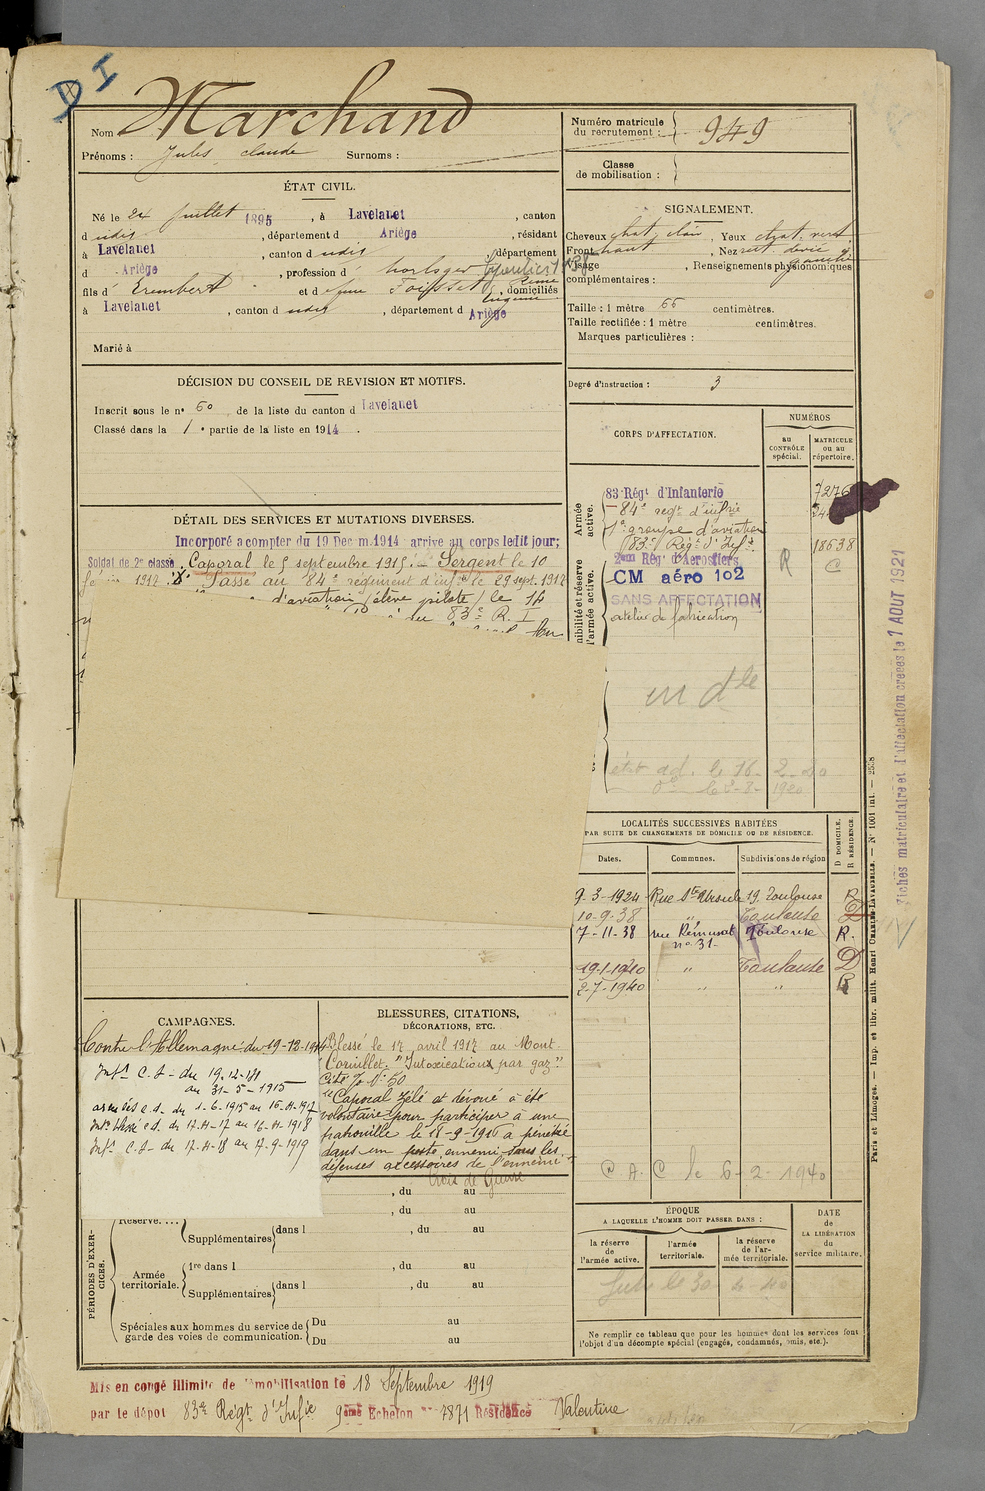 D I
Nom Marchand
Prénoms : Jules Claude Surnoms :
Numéro matricule du recrutement : 949
Classe de mobilisation :
ÉTAT CIVIL.
Né le 24 Juillet 1895, à Lavelanet, canton
d udis, département d Ariège, résidant
à Lavelanet, canton d udis, département
d Ariège, profession d horloger
fils d' Erembert et d domiciliés
à Lavelanet, canton d udis, département d Ariège
Marié à
SIGNALEMENT.
Cheveux chat. clair, Yeux chat. vert
Front haut, Nez rect. dévié à gauche
Visage, Renseignements physionomiques
complémentaires :
Taille : 1 mètre 66 centimètres.
Taille rectifiée : 1 mètre centimètres.
Marques particulières :
Degré d'instruction : 3
DÉCISION DU CONSEIL DE REVISION ET MOTIFS.
Inscrit sous le n° 60 de la liste du canton d Lavelanet
Classé dans la 1e partie de la liste en 1914.
CORPS D'AFFECTATION.
NUMÉROS
au CONTRÔLE spécial.
MATRICULE ou au répertoire.
Armée active.
83 Régt d'Infanterie 7276
84e régt d'infrie
1er groupe d'aviation
83e Régt d'Infie 18638
2ème Rég' d'Aérostiers R C
CM aéro 102
SANS AFFECTATION
atelier de fabrication
nibilité et réserve
l'armée active.
DÉTAIL DES SERVICES ET MUTATIONS DIVERSES.
Incorporé à compter du 19 Dec m. 1914 arrivé au corps le dit jour;
Soldat de 2e classe Caporal le 5 septembre 1915. Sergent le 10
1917. Passé au 84e régiment d'infie le 29 sept. 1917
d'aviation (élève pilote) le 14
du 83e R. I
LOCALITÉS SUCCESSIVES HABITÉES
PAR SUITE DE CHANGEMENTS DE DOMICILE OU DE RÉSIDENCE.
Dates. Communes. Subdivisions de région
D DOMICILE.
R RÉSIDENCE.
9-3-1924 Rue Ste Ursule 19 Toulouse R
10-9-38 " Toulouse D
7-11-38 rue Rémusat n° 31- Toulouse R.
19-1-1940 " Toulouse D
2-7-1940 " " R
C A C le 6-2-1940
CAMPAGNES.
Contre l'Allemagne du 19-12-1914
Intr C.S- du 19.12.14
au 31-5-1915
armées c.d. du 1-6-1915 au 16-4-1917
Intr blessé c.d. du 17-4-17 au 16-4-1918
Intr C.S- du 17-4-18 au 17-9-1919
BLESSURES, CITATIONS,
DÉCORATIONS, ETC.
Blessé le 17 avril 1917 au Mont
Cornillet. "Intoxication par gaz"
Cité N° 50
"Caporal zélé et dévoué a été
volontaire pour participer à une
patrouille le 18-9-1916 a pénétré
dans un poste ennemi sous les
défenses accessoires de l'ennemi"
Croix de Guerre
, du au
, du au
PÉRIODES D'EXERCICES.
Réserve. ...
Supplémentaires dans l , du au
Armée territoriale.
1re dans l , du au
Supplémentaires dans l , du au
Spéciales aux hommes du service de garde des voies de communication.
Du au
Du au
ÉPOQUE
A LAQUELLE L'HOMME DOIT PASSER DANS :
la réserve de l'armée active.
l'armée territoriale.
la réserve de l'armée territoriale.
DATE de LA LIBÉRATION du service militaire.
Ne remplir ce tableau que pour les hommes dont les services font
l'objet d'un décompte spécial (engagés, condamnés, omis, etc.).
Mis en congé illimité de démobilisation le 18 Septembre 1919
par le dépôt 83e Régt d'Infie 9ème Echelon n° 7871 Résidence Valentine
Fiches matriculaire et d'affectation créées le 7 AOUT 1921
Paris et Limoges. — Imp. et libr. milit. Henri CHARLES-LAVAUZELLE. — N° 1001 int. — 2538